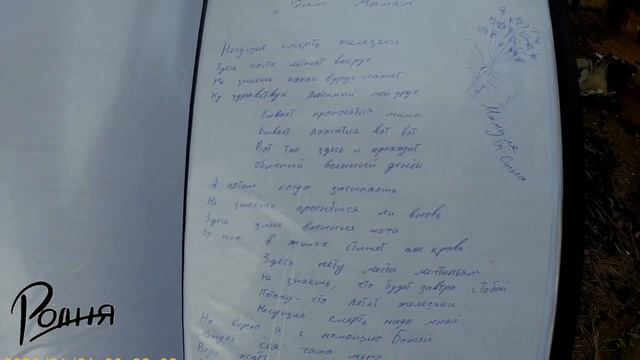 "Всем Мамам"
Несущие смерть железяки
Здесь часто летают вокруг
Не знаешь какая вдруг скажет
Ну здравствуй любимый мой друг
Бывает проносятся мимо
Бывает ложатся вот вот
Вот так здесь и проходит
Обычный военный денёк
А потом когда засыпаешь
Не знаешь проснёшся ли вновь
Здесь злые военные ночи
От них в жилах стынет аж кровь
Здесь нету места
Не знаешь, что будет завтра стобой
Потому-что летят железяки
Несущие смерть надо мной
Но верю я с помощью Божой
сея чаша меня
Ведь ждёт
Мамуле
от Сына
Родня